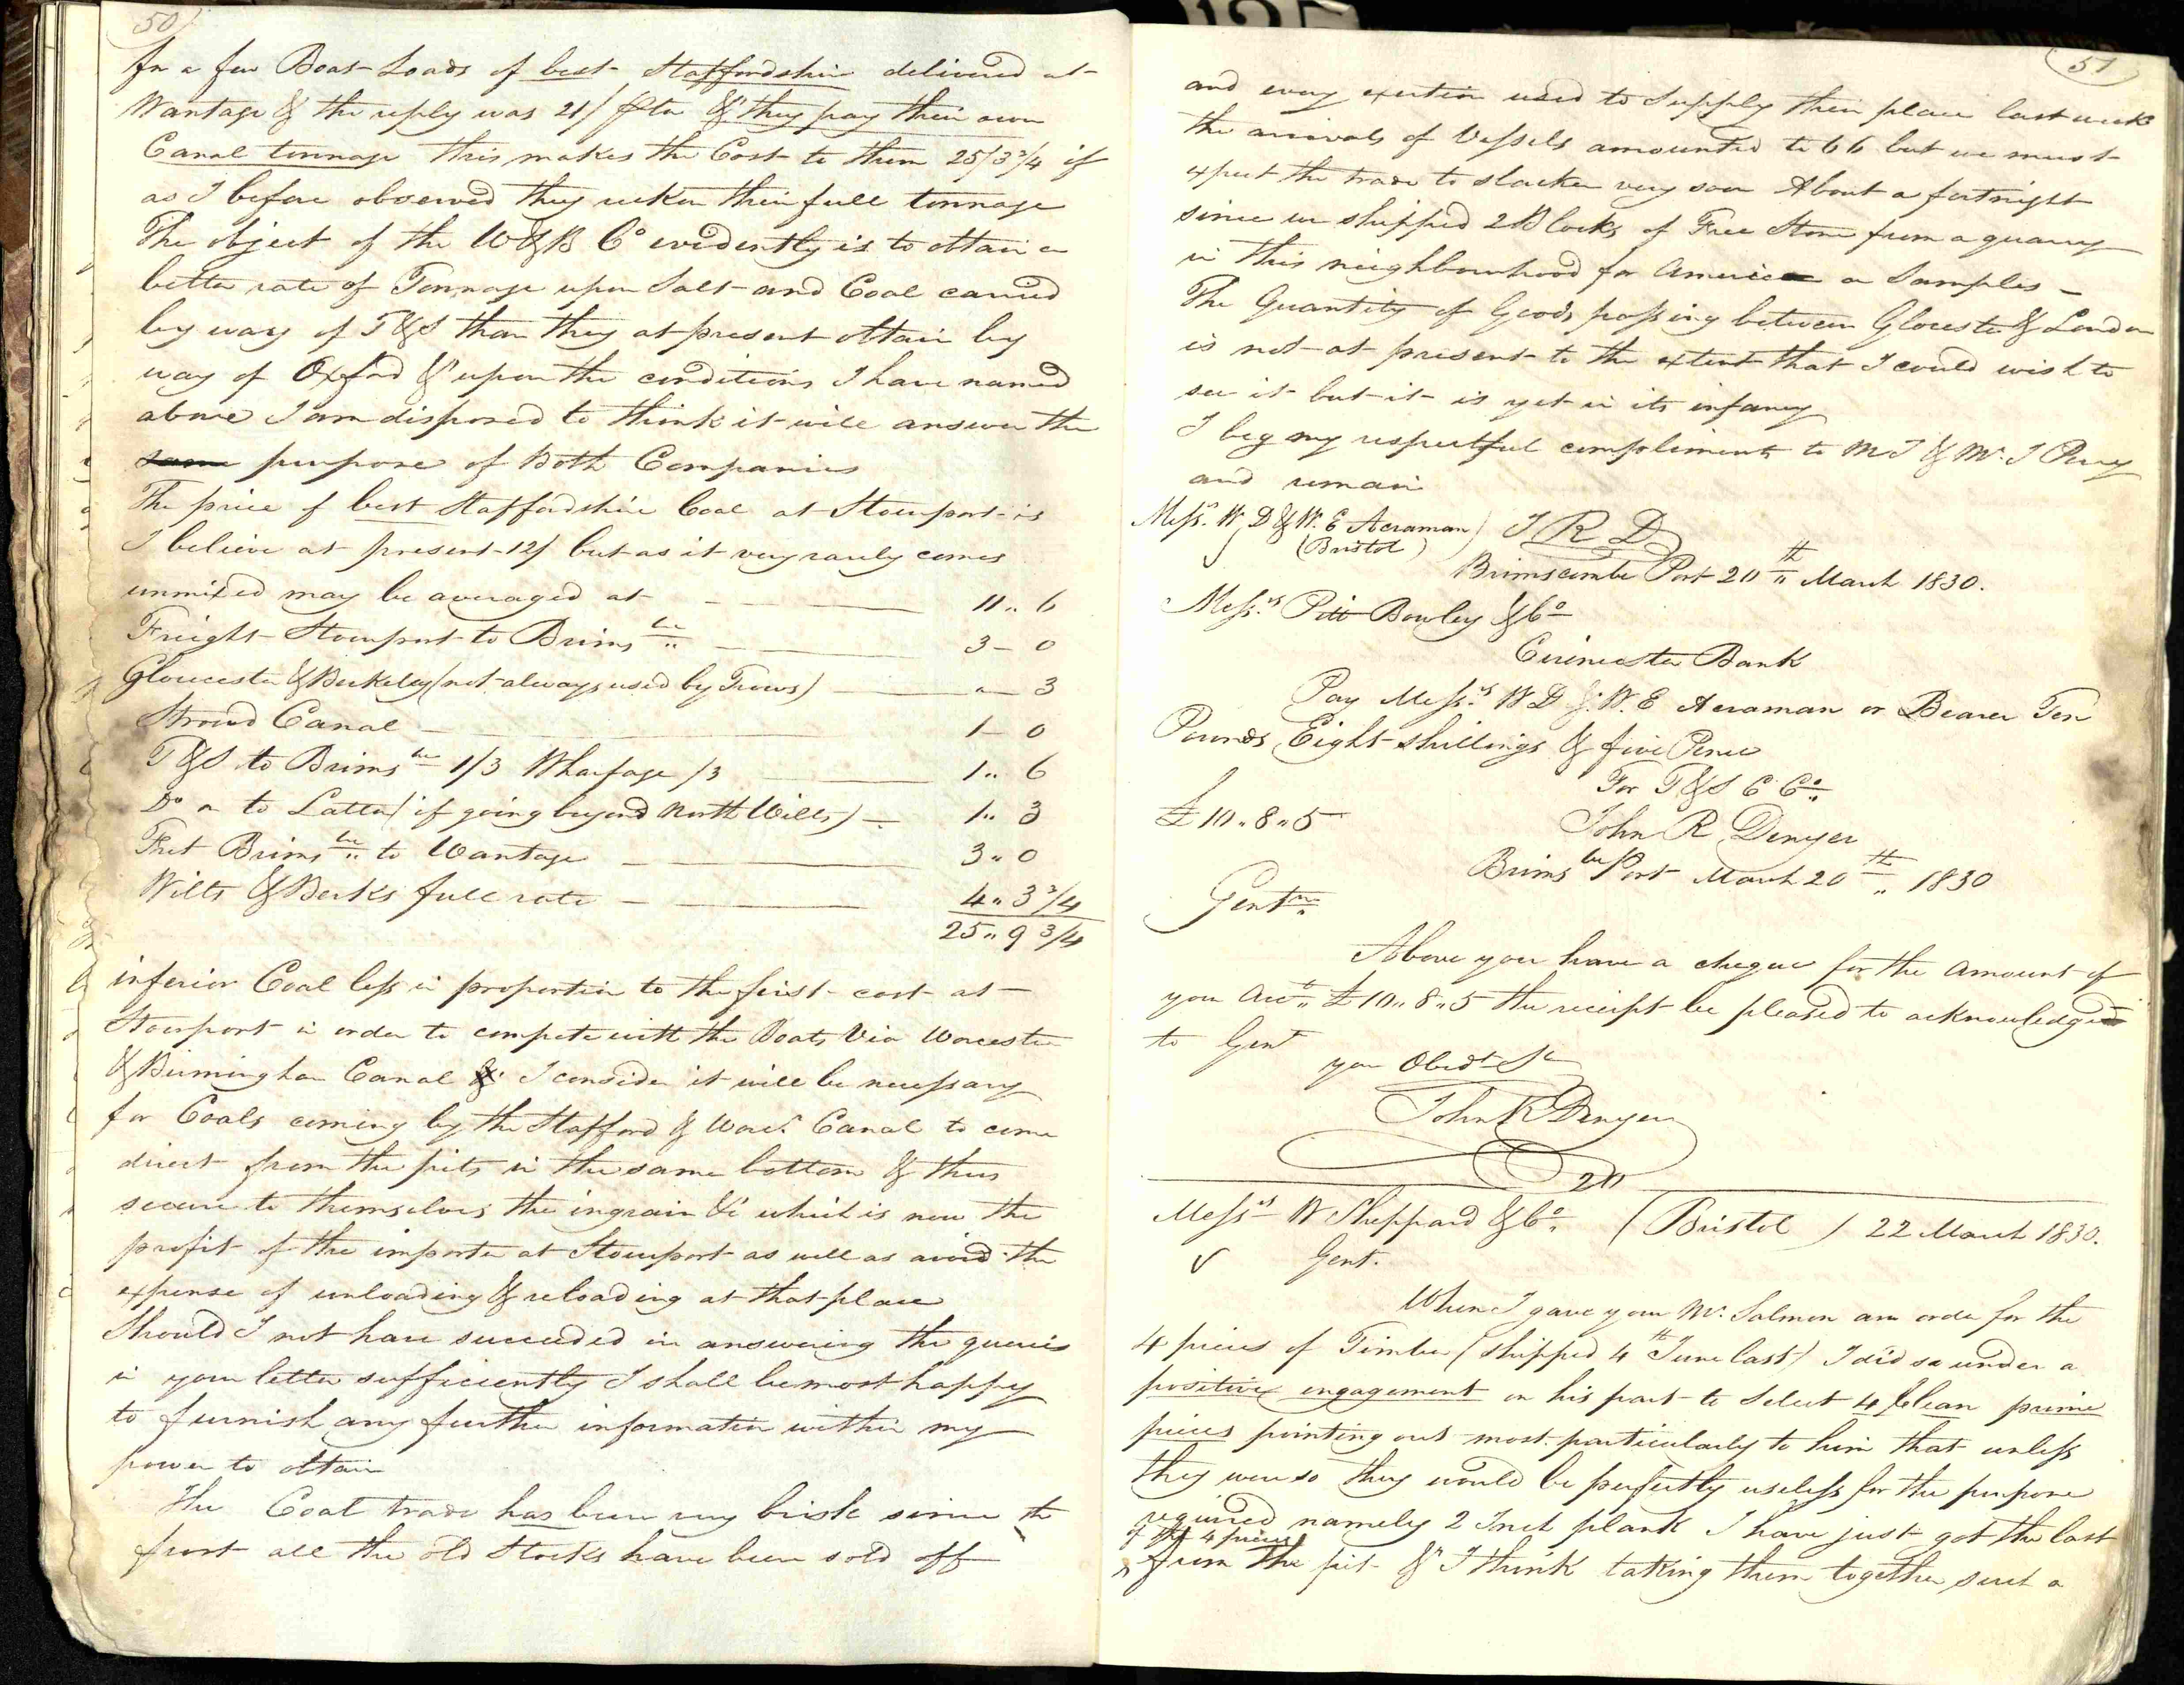 50
for a few Boat Loads of best Staffordshire delivered at
Wantage & the reply was 21/ P ton & they pay their own
Canal tonnage this makes the Cost to them 25/3 3/4 if
as I before observed they reckon their full tonnage
The object of the W&B Co evidently is to obtain a
better rate of Tonnage upon Salt and Coal carried
by way of T&S than they at present obtain by
way of Oxford & upon the conditions I have named
above I am disposed to think it will answer the
same purpose of Both Companies
The price of best Staffordshire Coal at Stourport is
I believe at present 12/ but as it very rarely comes
unmixed may be averaged at 11 " 6
Freight Stourport to Brimsbe 3 - 0
Gloucester & Berkeley (not always used by Trows) " - 3
Stroud Canal 1 - 0
T&S to Brimsbe 1/3 Wharfage /3 1 " 6
Do " to Latton (if going beyond North Wilts) 1 " 3
Fret Brimsbe to Wantage 3 " 0
Wilts & Berks full rate 4 " 3 3/4
25 " 9 3/4
inferior Coal less in proportion to the first cost at
Stourport in order to compete with the Boats via Worcester
& Birmingham Canal & I consider it will be necessary
for Coals coming by the Stafford & Worcr Canal to come
direct from the pits in the same bottom & thus
secure to themselves the ingrain &c which is now the
profit of the importer at Stourport as well as avoid the
expense of unloading & reloading at that place
Should I not have succeeded in answering the queries
in your letter sufficiently I shall be most happy
to furnish any further information within my
power to obtain
The Coal trade has been very brisk since the
frost all the old Stocks have been sold off
51
and every exertion used to Supply their place last week
the arrivals of Vessels amounted to 66 but we must
expect the trade to slacken very soon About a fortnight
since we shipped 2 Blocks of Free Stone from a quarry
in this neighbourhood for America as Samples -
The Quantity of Goods passing between Glouester & London
is not at present to the extent that I could wish to
see it but it is yet in its infancy
I beg my respectful compliments to Mr J & Mr. J Perry
and remain
J R D
Messrs. W, D & W. E Acraman
(Bristol)
Brimscombe Port 20th March 1830.
Messrs Pitt Bowley & Co
Cirencester Bank
Pay Messrs W D & W. E Acraman or Bearer Ten
Pounds Eight shillings & five Pence
For T&S C Co
£10 " 8 " 5
John R Denyer
Brimsbe Port March 20th 1830
Gentn
Above you have a cheque for the amount of
your Acct £10 " 8 " 5 the receipt be pleased to acknowledge
to Gent
your Obedt St
John R Denyer
20
Messrs W Sheppard & Co. (Bristol) 22 March 1830.
Gent.
When I gave your Mr. Salmon an order for the
4 pieces of Timber (shipped 4th June last) I did so under a
positive engagement on his part to select 4 Clean prime
pieces pointing out most particularly to him that unless
they were so they would be perfectly useless for the purpose
required namely 2 Inch plank I have just got the last
of the 4 pieces
from the pit & I think taking them together such a